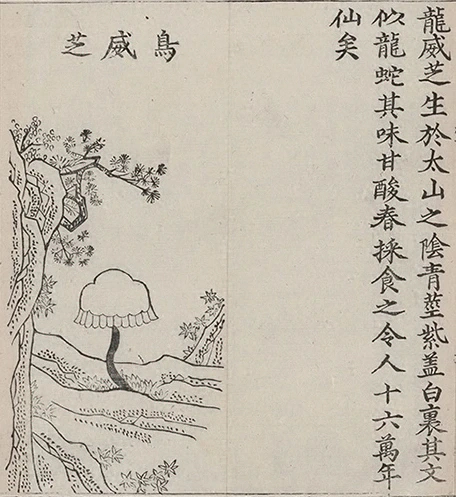 龍威芝生於太山之陰青莖紫盖白裏其文
似龍蛇其味甘酸春採食之令人十六萬年
仙矣
鳥威芝